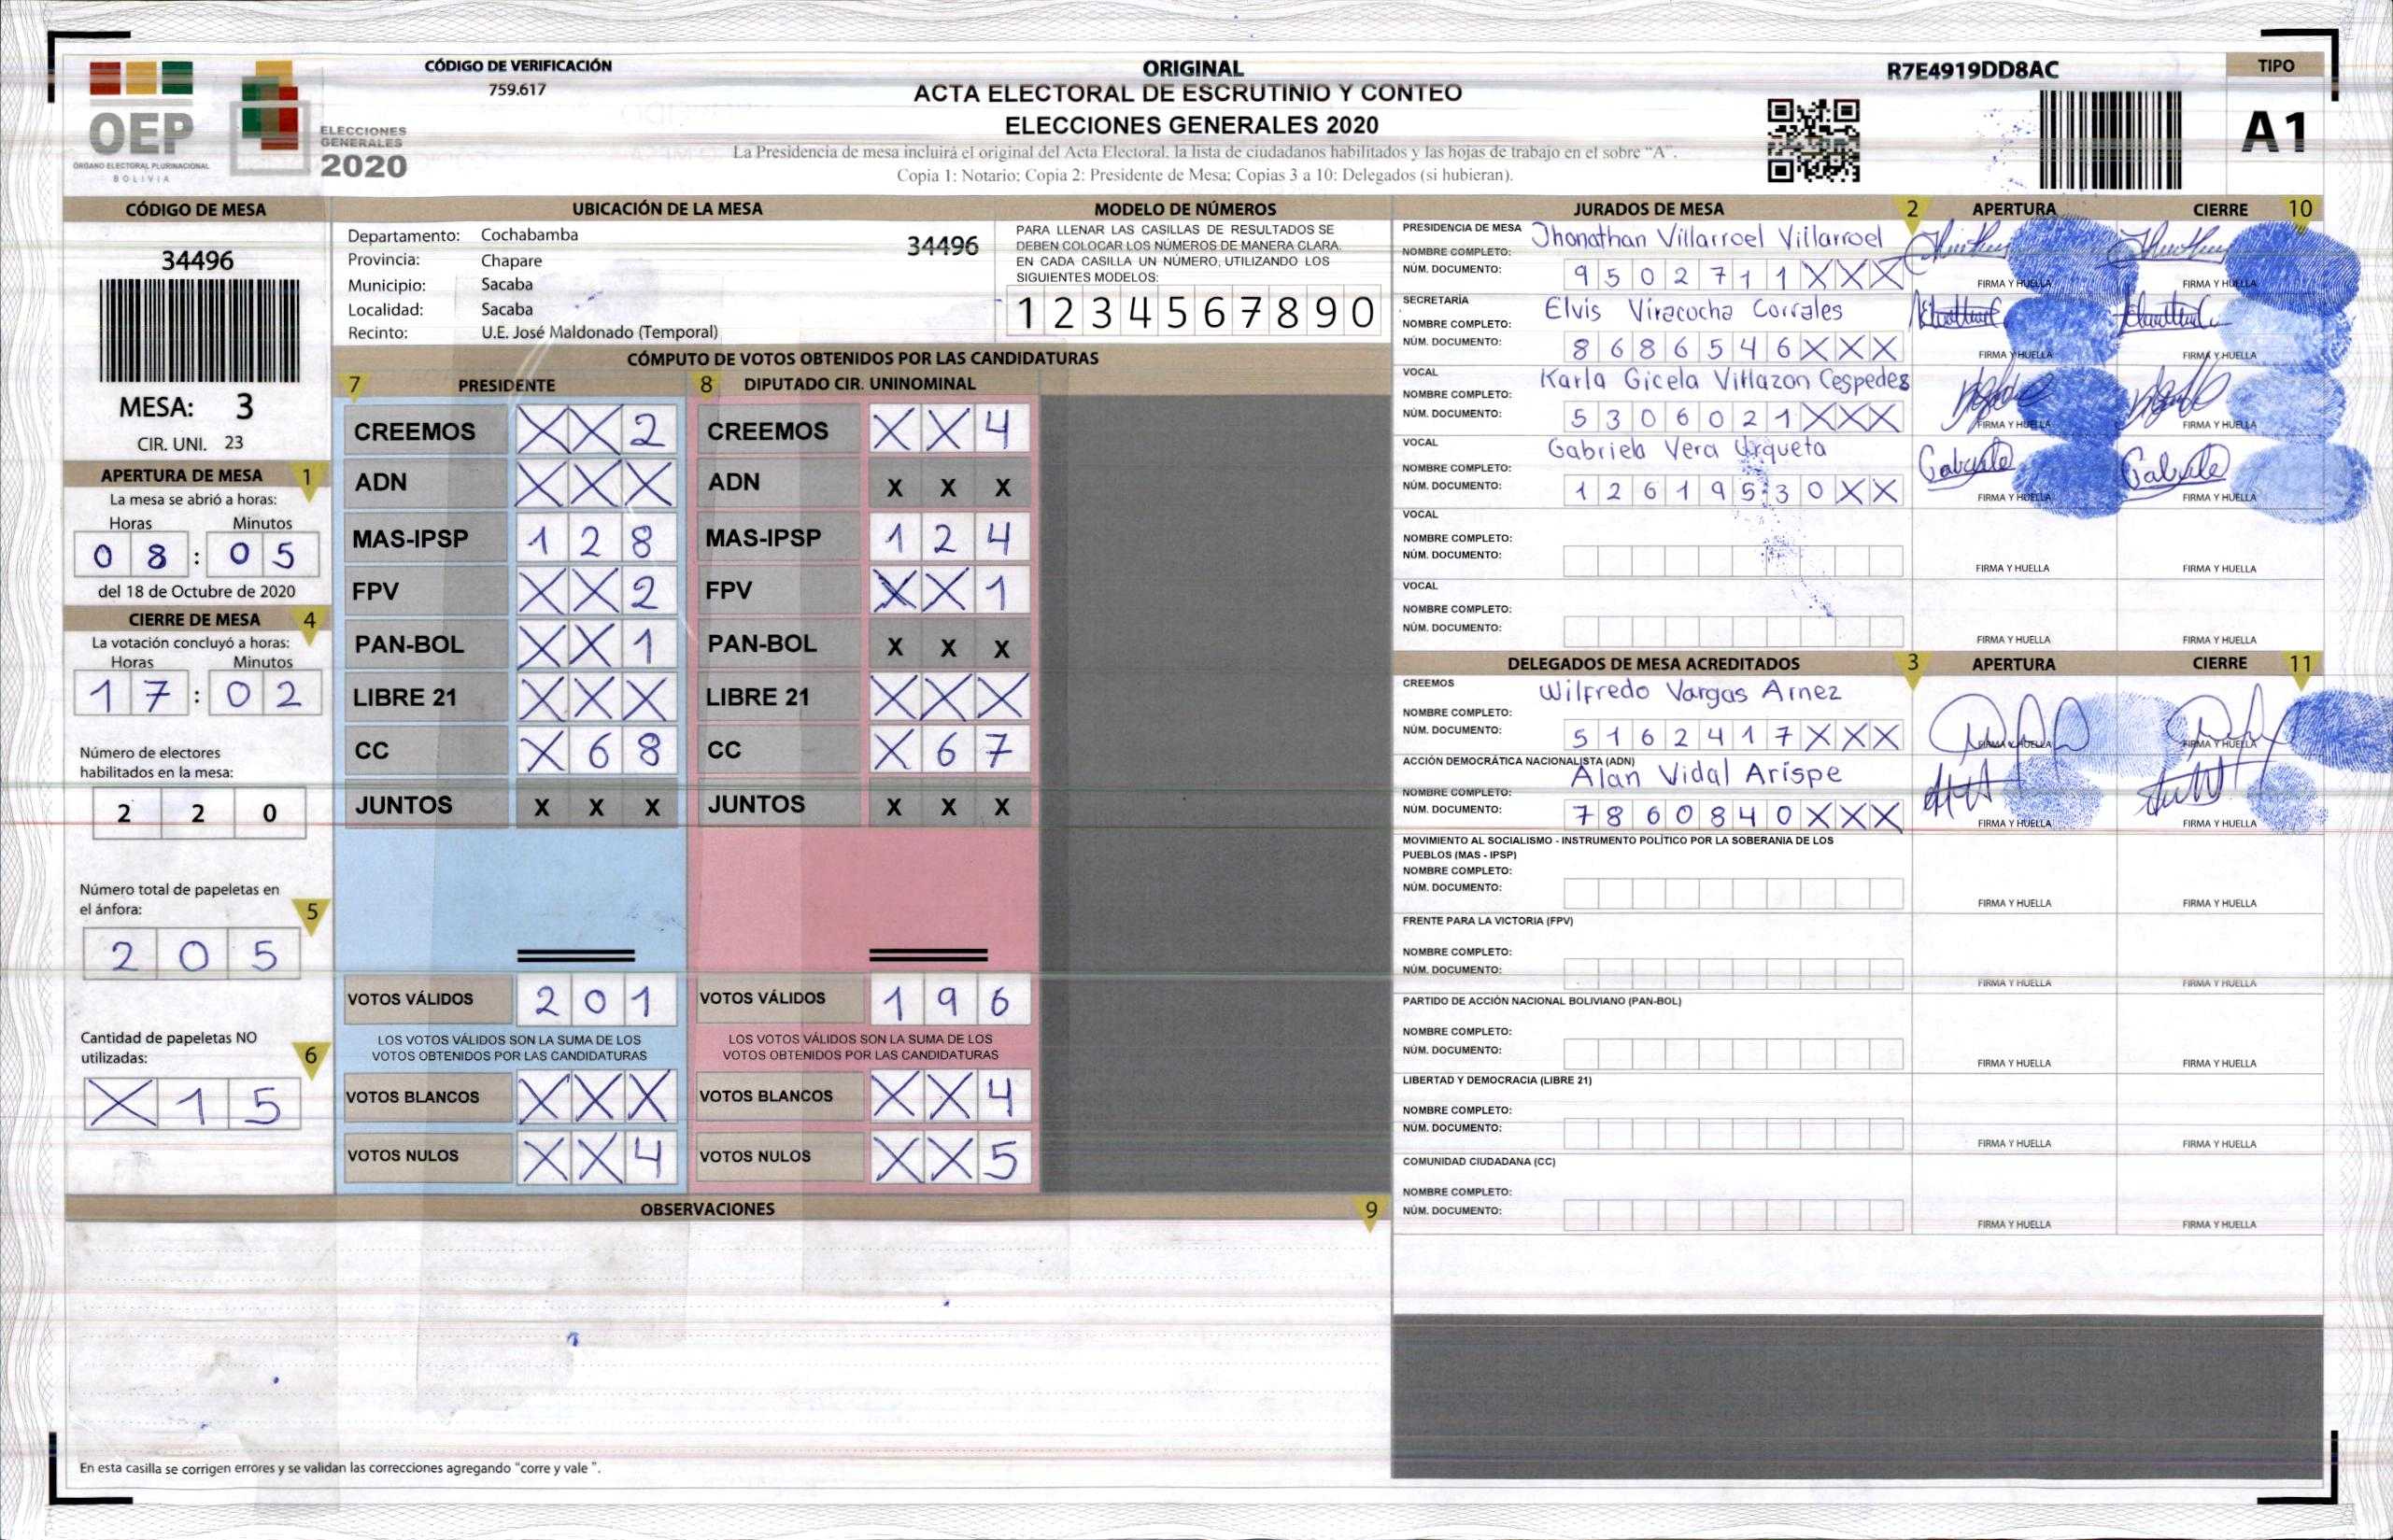 OEP
ÓRGANO ELECTORAL PLURINACIONAL
BOLIVIA
ELECCIONES
GENERALES
2020
CÓDIGO DE VERIFICACIÓN
759.617
ORIGINAL
ACTA ELECTORAL DE ESCRUTINIO Y CONTEO
ELECCIONES GENERALES 2020
La Presidencia de mesa incluirá el original del Acta Electoral, la lista de ciudadanos habilitados y las hojas de trabajo en el sobre "A".
Copia 1: Notario; Copia 2: Presidente de Mesa; Copias 3 a 10: Delegados (si hubieran).
R7E4919DD8AC
TIPO
A1
CÓDIGO DE MESA
34496
MESA: 3
CIR. UNI. 23
APERTURA DE MESA 1
La mesa se abrió a horas:
Horas Minutos
0 8 : 0 5
del 18 de Octubre de 2020
CIERRE DE MESA 4
La votación concluyó a horas:
Horas Minutos
1 7 : 0 2
Número de electores
habilitados en la mesa:
2 2 0
Número total de papeletas en
el ánfora: 5
2 0 5
Cantidad de papeletas NO
utilizadas: 6
X 1 5
UBICACIÓN DE LA MESA
Departamento: Cochabamba
34496
Provincia: Chapare
Municipio: Sacaba
Localidad: Sacaba
Recinto: U.E. José Maldonado (Temporal)
MODELO DE NÚMEROS
PARA LLENAR LAS CASILLAS DE RESULTADOS SE
DEBEN COLOCAR LOS NÚMEROS DE MANERA CLARA.
EN CADA CASILLA UN NÚMERO, UTILIZANDO LOS
SIGUIENTES MODELOS:
1 2 3 4 5 6 7 8 9 0
CÓMPUTO DE VOTOS OBTENIDOS POR LAS CANDIDATURAS
7 PRESIDENTE 8 DIPUTADO CIR. UNINOMINAL
CREEMOS X X 2 CREEMOS X X 4
ADN X X X ADN X X X
MAS-IPSP 1 2 8 MAS-IPSP 1 2 4
FPV X X 2 FPV X X 1
PAN-BOL X X 1 PAN-BOL X X X
LIBRE 21 X X X LIBRE 21 X X X
CC X 6 8 CC X 6 7
JUNTOS X X X JUNTOS X X X
VOTOS VÁLIDOS 2 0 1 VOTOS VÁLIDOS 1 9 6
LOS VOTOS VÁLIDOS SON LA SUMA DE LOS LOS VOTOS VÁLIDOS SON LA SUMA DE LOS
VOTOS OBTENIDOS POR LAS CANDIDATURAS VOTOS OBTENIDOS POR LAS CANDIDATURAS
VOTOS BLANCOS X X X VOTOS BLANCOS X X 4
VOTOS NULOS X X 4 VOTOS NULOS X X 5
OBSERVACIONES 9
En esta casilla se corrigen errores y se validan las correcciones agregando "corre y vale ".
JURADOS DE MESA 2 APERTURA CIERRE 10
PRESIDENCIA DE MESA Jhonathan Villarroel Villarroel
NOMBRE COMPLETO:
NÚM. DOCUMENTO: 9 5 0 2 7 1 1 X X X FIRMA Y HUELLA FIRMA Y HUELLA
SECRETARÍA Elvis Viracocha Corrales
NOMBRE COMPLETO:
NÚM. DOCUMENTO: 8 6 8 6 5 4 6 X X X FIRMA Y HUELLA FIRMA Y HUELLA
VOCAL Karla Gicela Villazon Cespedes
NOMBRE COMPLETO:
NÚM. DOCUMENTO: 5 3 0 6 0 2 1 X X X FIRMA Y HUELLA FIRMA Y HUELLA
VOCAL Gabriela Vera Urqueta
NOMBRE COMPLETO:
NÚM. DOCUMENTO: 1 2 6 1 9 5 3 0 X X FIRMA Y HUELLA FIRMA Y HUELLA
VOCAL
NOMBRE COMPLETO:
NÚM. DOCUMENTO: FIRMA Y HUELLA FIRMA Y HUELLA
VOCAL
NOMBRE COMPLETO:
NÚM. DOCUMENTO: FIRMA Y HUELLA FIRMA Y HUELLA
DELEGADOS DE MESA ACREDITADOS 3 APERTURA CIERRE 11
CREEMOS Wilfredo Vargas Arnez
NOMBRE COMPLETO:
NÚM. DOCUMENTO: 5 1 6 2 4 1 7 X X X FIRMA Y HUELLA FIRMA Y HUELLA
ACCIÓN DEMOCRÁTICA NACIONALISTA (ADN)
Alan Vidal Arispe
NOMBRE COMPLETO:
NÚM. DOCUMENTO: 7 8 6 0 8 4 0 X X X FIRMA Y HUELLA FIRMA Y HUELLA
MOVIMIENTO AL SOCIALISMO - INSTRUMENTO POLÍTICO POR LA SOBERANIA DE LOS
PUEBLOS (MAS - IPSP)
NOMBRE COMPLETO:
NÚM. DOCUMENTO: FIRMA Y HUELLA FIRMA Y HUELLA
FRENTE PARA LA VICTORIA (FPV)
NOMBRE COMPLETO:
NÚM. DOCUMENTO: FIRMA Y HUELLA FIRMA Y HUELLA
PARTIDO DE ACCIÓN NACIONAL BOLIVIANO (PAN-BOL)
NOMBRE COMPLETO:
NÚM. DOCUMENTO: FIRMA Y HUELLA FIRMA Y HUELLA
LIBERTAD Y DEMOCRACIA (LIBRE 21)
NOMBRE COMPLETO:
NÚM. DOCUMENTO: FIRMA Y HUELLA FIRMA Y HUELLA
COMUNIDAD CIUDADANA (CC)
NOMBRE COMPLETO:
NÚM. DOCUMENTO: FIRMA Y HUELLA FIRMA Y HUELLA